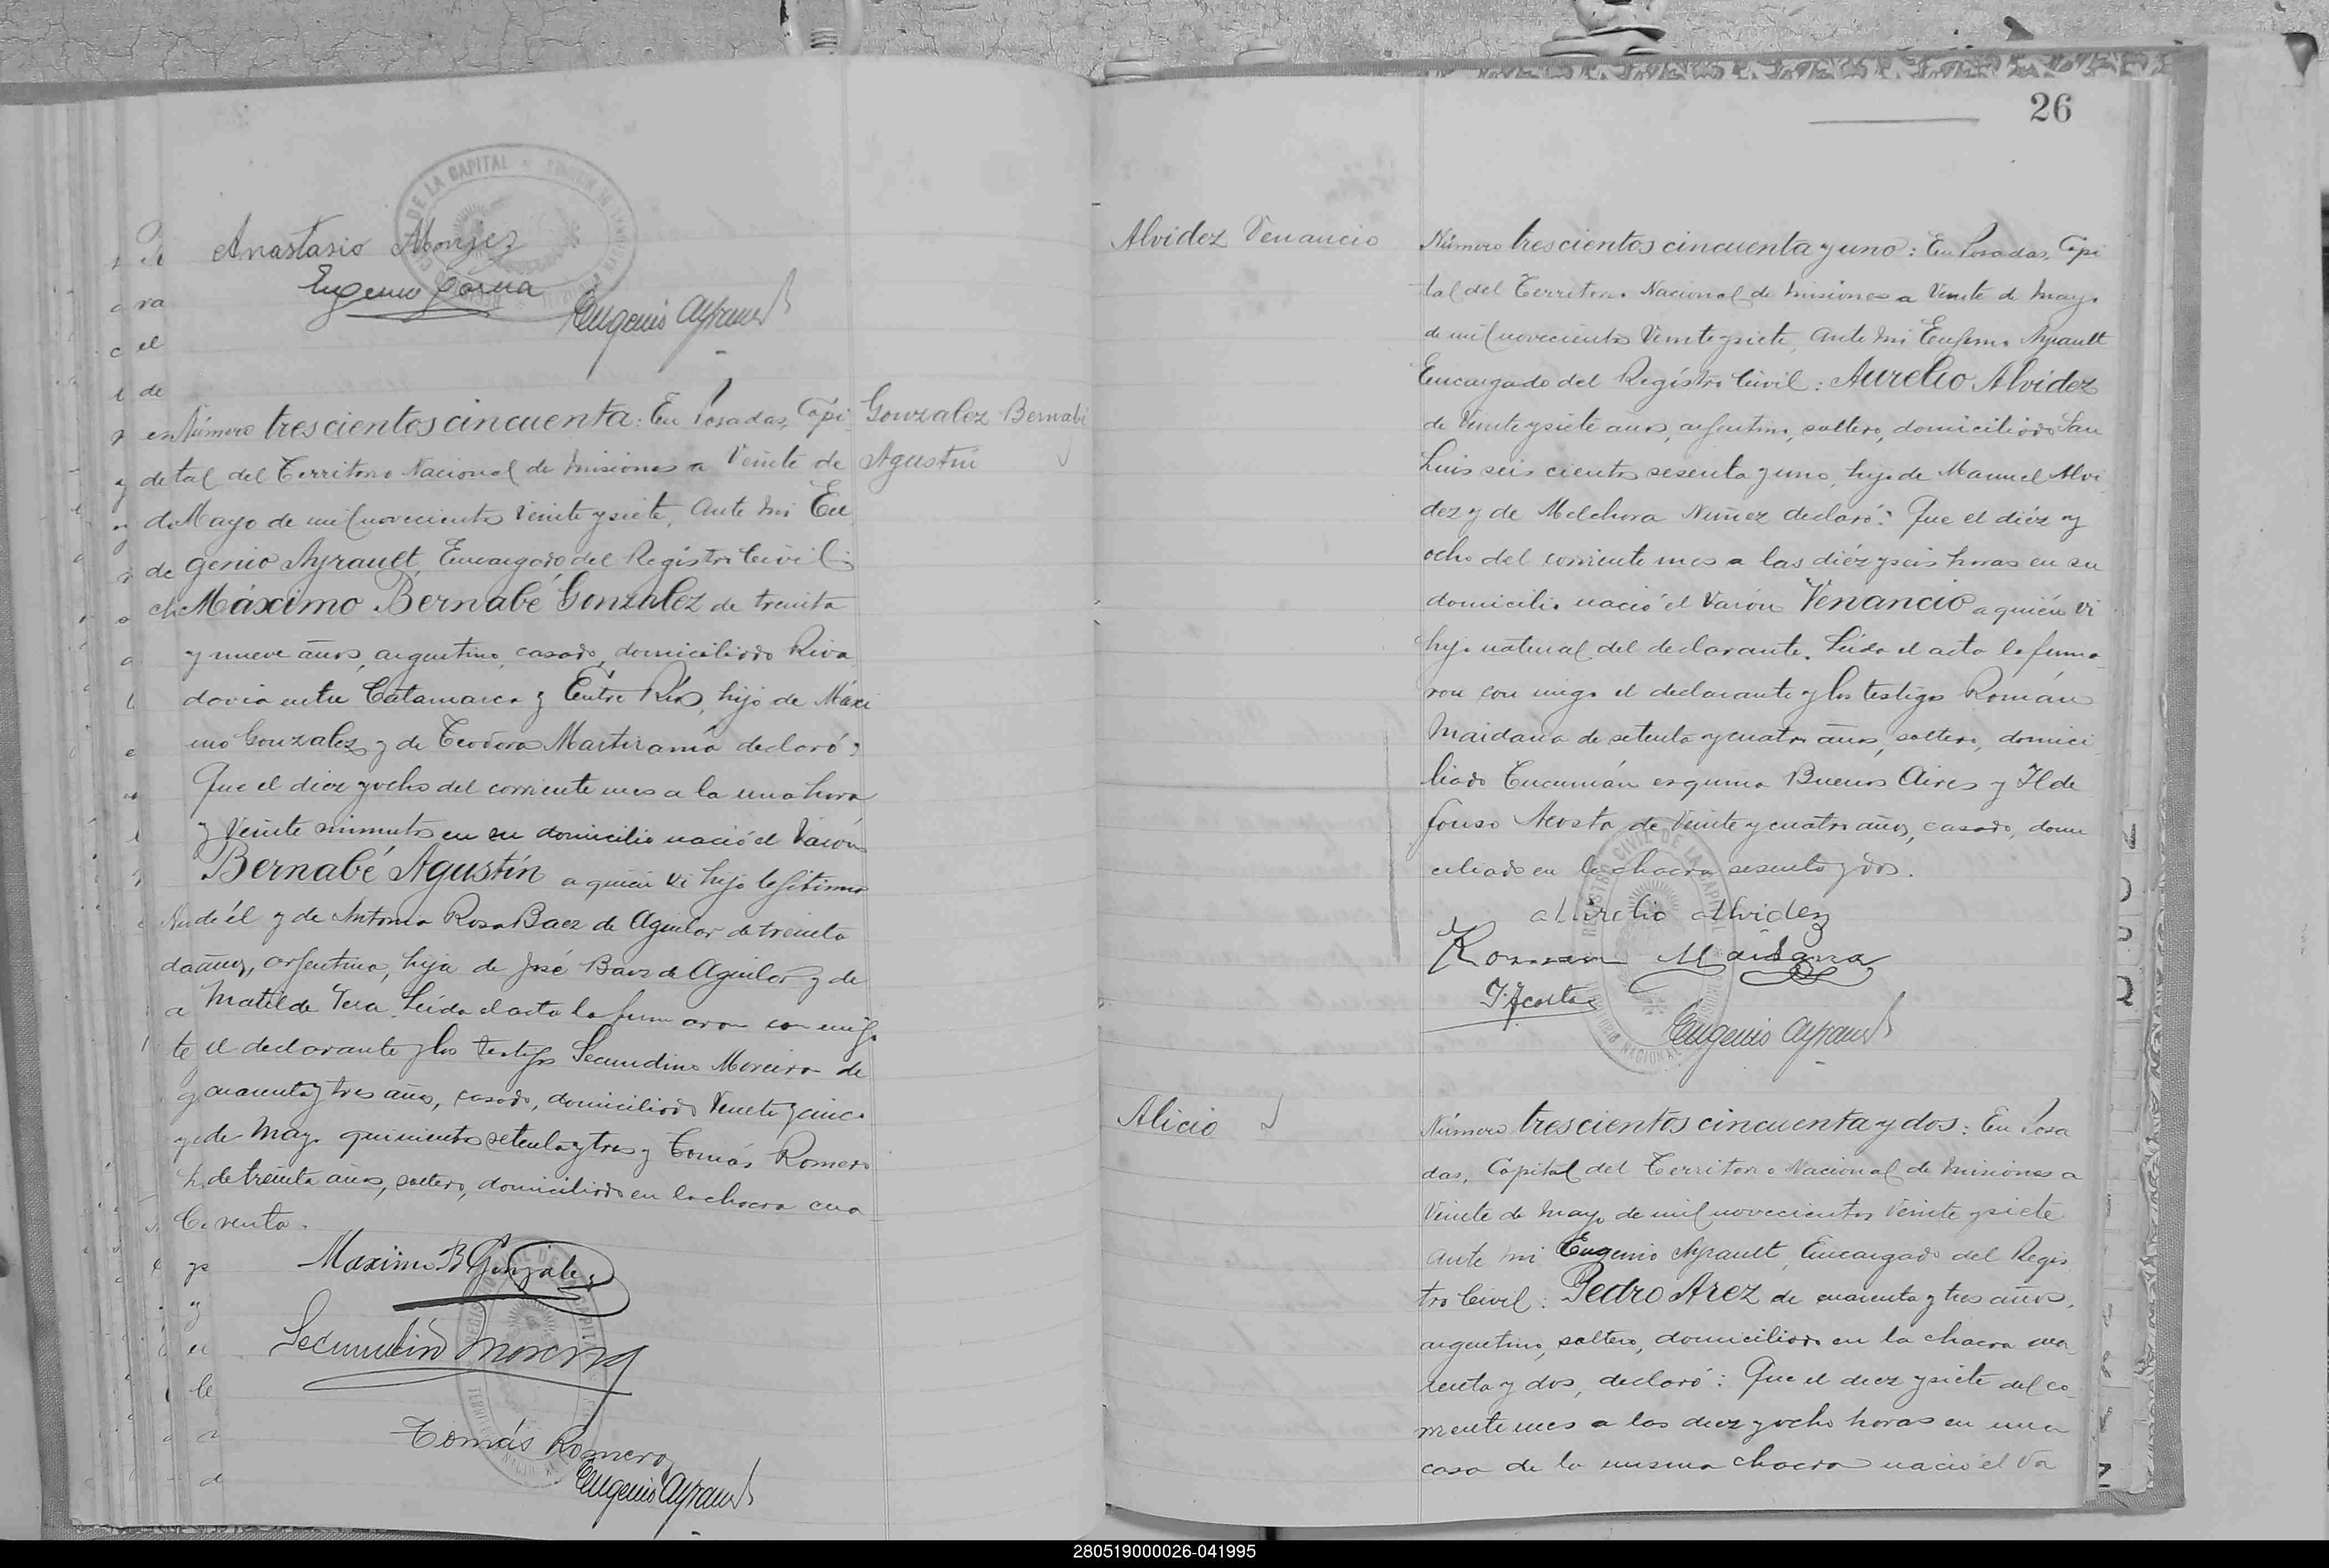 Anastasio Monjez
Eugenio Garcia
Eugenio Ayrault
Número trescientos cincuenta: En Posadas, Capi
tal del Territorio Nacional de Misiones a Veinte de
Mayo de mil novecientos Veinte y siete, Ante mi Eu
genio Ayrault, Encargado del Registro Civil:
Máximo Bernabé Gonzalez de treinta
y nueve años, argentino, casado, domiciliado Riva
davia entre Catamarca y Entre Rios, hijo de Máxi
mo Gonzalez y de Teodora Martirama declaró:
Que el diez y ocho del corriente mes a la una hora
y Veinte minutos en su domicilio nació el Varón
Bernabé Agustín a quien vi hijo legítimo
de él y de Antonia Rosa Baez de Aguilar de treinta
años, argentina, hija de José Baez de Aguilar y de
Matilde Vera. Leida el acta la firmaron con migo
el declarante y los testigos Secundino Moreira de
cuarenta y tres años, casado, domiciliado Veinte y cinco
de Mayo quinientos setenta y tres y Tomás Romero
de treinta años, soltero, domiciliado en la chacra cua
renta.
Maximo B Gonzalez
Secundino Moreira
Tomás Romero
Eugenio Ayrault
Gonzalez Bernabé
Agustín
26
Alvidez Venancio
Número trescientos cincuenta y uno: En Posadas, Capi
tal del Territorio Nacional de Misiones a Veinte de Mayo
de mil novecientos Veinte y siete, Ante mi Eugenio Ayrault
Encargado del Registro Civil: Aurelio Alvidez
de Veinte y siete años, argentino, soltero, domiciliado San
Luis seis cientos sesenta y uno, hijo de Manuel Alvi
dez y de Melchora Nuñez declaró: Que el diéz y
ocho del corriente mes a las diéz y seis horas en su
domicilio nació el Varón Venancio a quién vi
hijo natural del declarante. Leida el acta la firma
ron con migo el declarante y los testigos Román
Maidana de setenta y cuatro años, soltero, domici
liado Tucumán esquina Buenos Aires y Ilde
fonso Acosta de Veinte y cuatro años, casado, domi
ciliado en la chacra sesenta y dos.
Aurelio Alvidez
Roman Maidana
I. Acosta
Eugenio Ayrault
Alicio
Número trescientos cincuenta y dos: En Posa
das, Capital del Territorio Nacional de Misiones a
Veinte de Mayo de mil novecientos Veinte y siete
Ante mi Eugenio Ayrault, Encargado del Regis
tro Civil: Pedro Arez de cuarenta y tres años,
argentino, soltero, domiciliado en la chacra cua
renta y dos, declaró: Que el diez y siete del co
rriente mes a las diez y ocho horas en una
casa de la misma chacra nació el Va
280519000026-041995